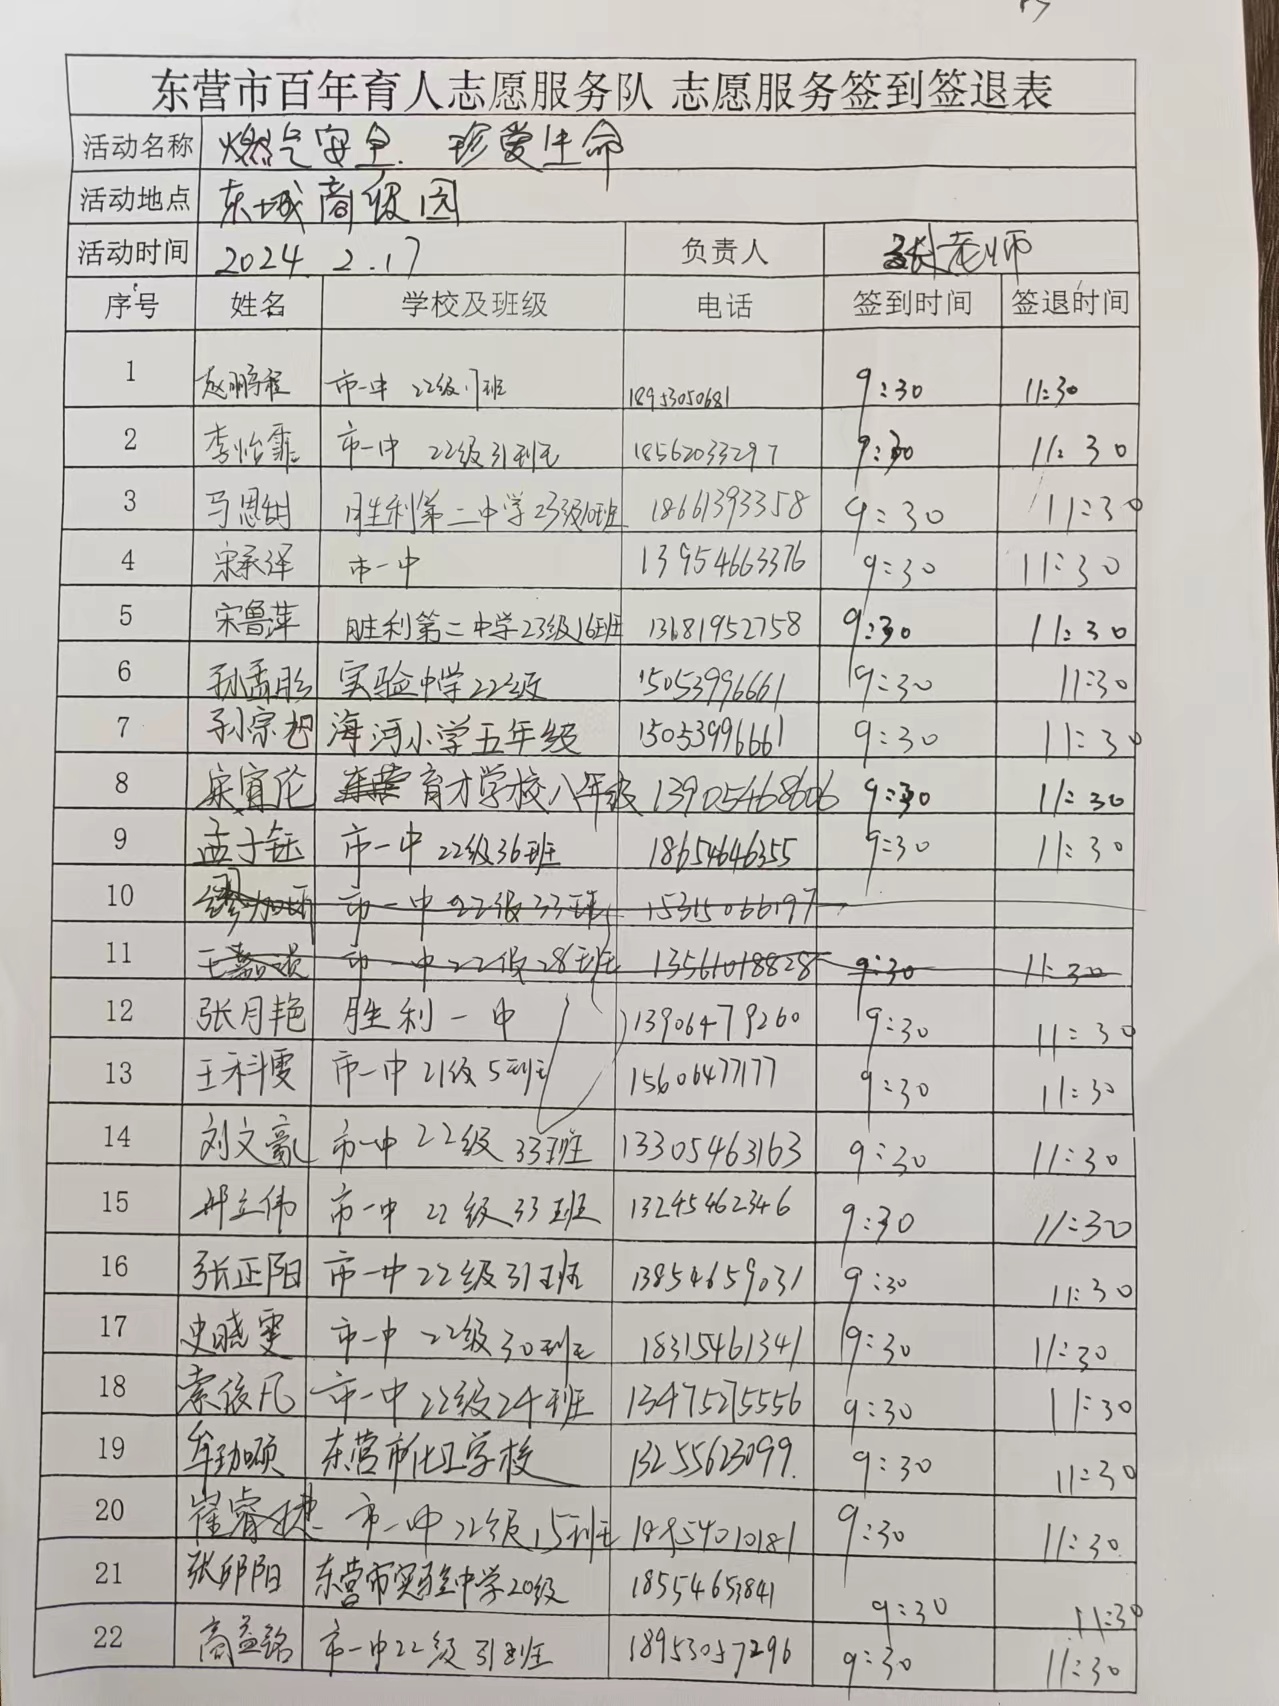 东营市百年育人志愿服务队 志愿服务签到签退表
活动名称 燃气安全. 珍爱生命
活动地点 东城高级园
活动时间 2024.2.17 负责人 张老师
序号 姓名 学校及班级 电话 签到时间 签退时间
1 赵鹏程 市一中 22级17班 18953050681 9:30 11:30
2 李怡霏 市一中 22级31班 18562033297 9:30 11:30
3 马思 胜利第二中学23级10班 18661393358 9:30 11:30
4 宋承泽 市一中 13954663376 9:30 11:30
5 宋鲁萍 胜利第二中学23级16班 13681952758 9:30 11:30
6 孙孟彤 实验中学22级 15053996661 9:30 11:30
7 孙宗旭 海河小学五年级 15053996661 9:30 11:30
8 宋寅伦 育才学校八年级 13905468606 9:30 11:30
9 孟子钰 市一中 22级36班 18654646355 9:30 11:30
10 市一中 22级33班 15315066197
11 王嘉 市一中 22级28班 13561018828 9:30 11:30
12 张月艳 胜利一中 13906479260 9:30 11:30
13 王科雯 市一中 21级5班 15606477177 9:30 11:30
14 刘文豪 市一中 22级 33班 13305463163 9:30 11:30
15 立伟 市一中 22级33班 13245462346 9:30 11:30
16 张正阳 市一中 22级31班 13854659031 9:30 11:30
17 史晓雯 市一中 22级30班 18315461341 9:30 11:30
18 索依凡 市一中 22级24班 13475275556 9:30 11:30
19 牟硕 东营市化工学校 13255623099. 9:30 11:30
20 崔睿婕 市一中 22级15班 18954010181 9:30 11:30
21 张阳 东营市实验中学20级 18554653841 9:30 11:30
22 高益铭 市一中22级31班 18953057296 9:30 11:30